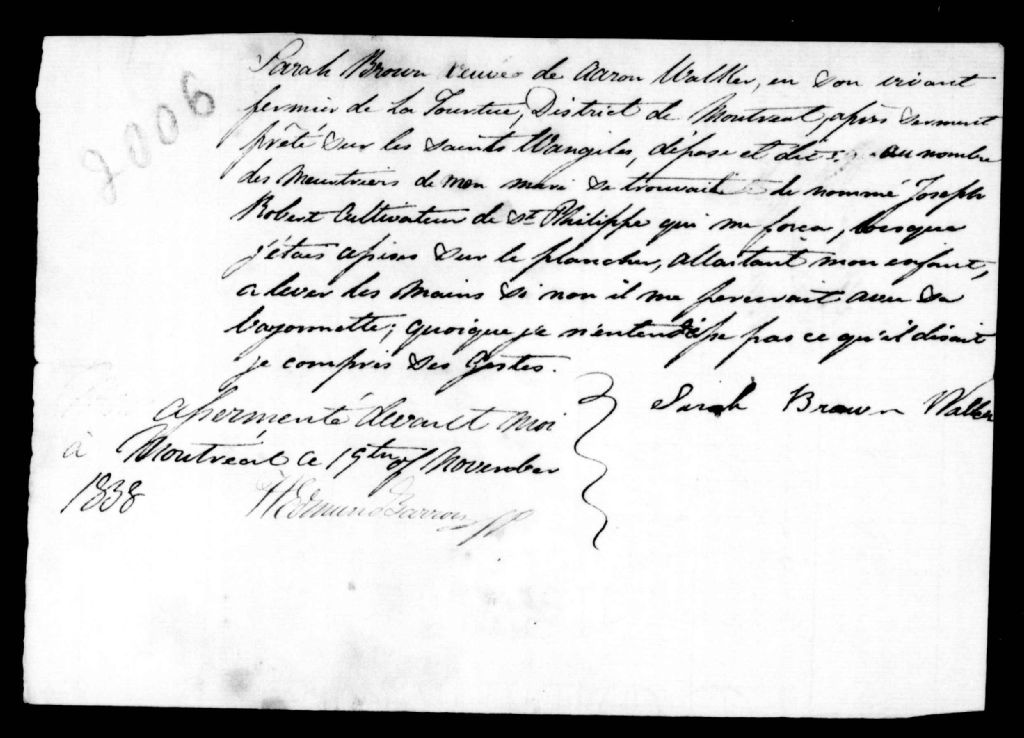 2006
Sarah Brown veuve de Aaron Walker, en son vivant
fermier de La Tourtue, District de Montreal, après serment
prêté sur les saints Evangiles, dépose et dit: au nombre
des meurtriers de mon mari se trouvait le nommé Joseph
Robert Cultivateur de St. Philippe qui me força, lorsque
j'étais assise sur le plancher, allaitant mon enfant,
a lever les mains si non il me percerait avec sa
bayonnette; quoique je n'entendisse pas ce qu'il disait
je compris ses gestes.
Sarah Brown Walker
assermenté devant moi
à Montréal ce 19th of November
1838